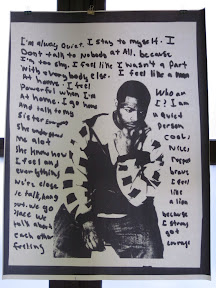 I'm always Quiet. I stay to myself. I
Don't talk to Nobody at All. because
I'm too shy. I feel like I wasn't a part
with everybody else. I feel like a man
at home. I feel
Powerful when I'm
At home. I go home
and talk to my
Sister
She understand
me alot
She know how
I feel and
everything
we're close
we talk, hang
out. we go
place we
talk about
each other
feeling
Who am
I? I am
a Quiet
person
cool,
Nice,
brave
I feel
like
a lion
because
I strong
got
courage